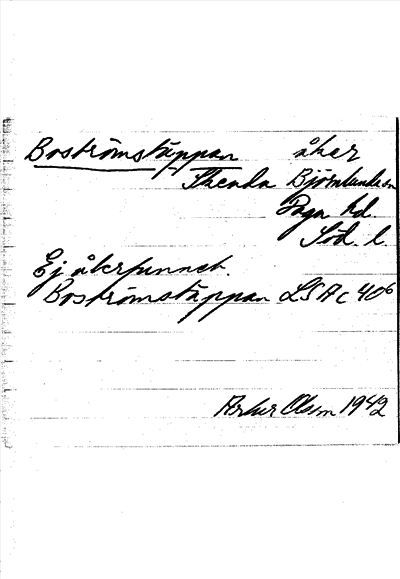 Boströmstäppan åker
Skenda Björnlunda sn
Daga hd
Söd. l.
Ej återfunnet.
Boströmstäppan LSA C 40⁶
Arthur Olson 1942